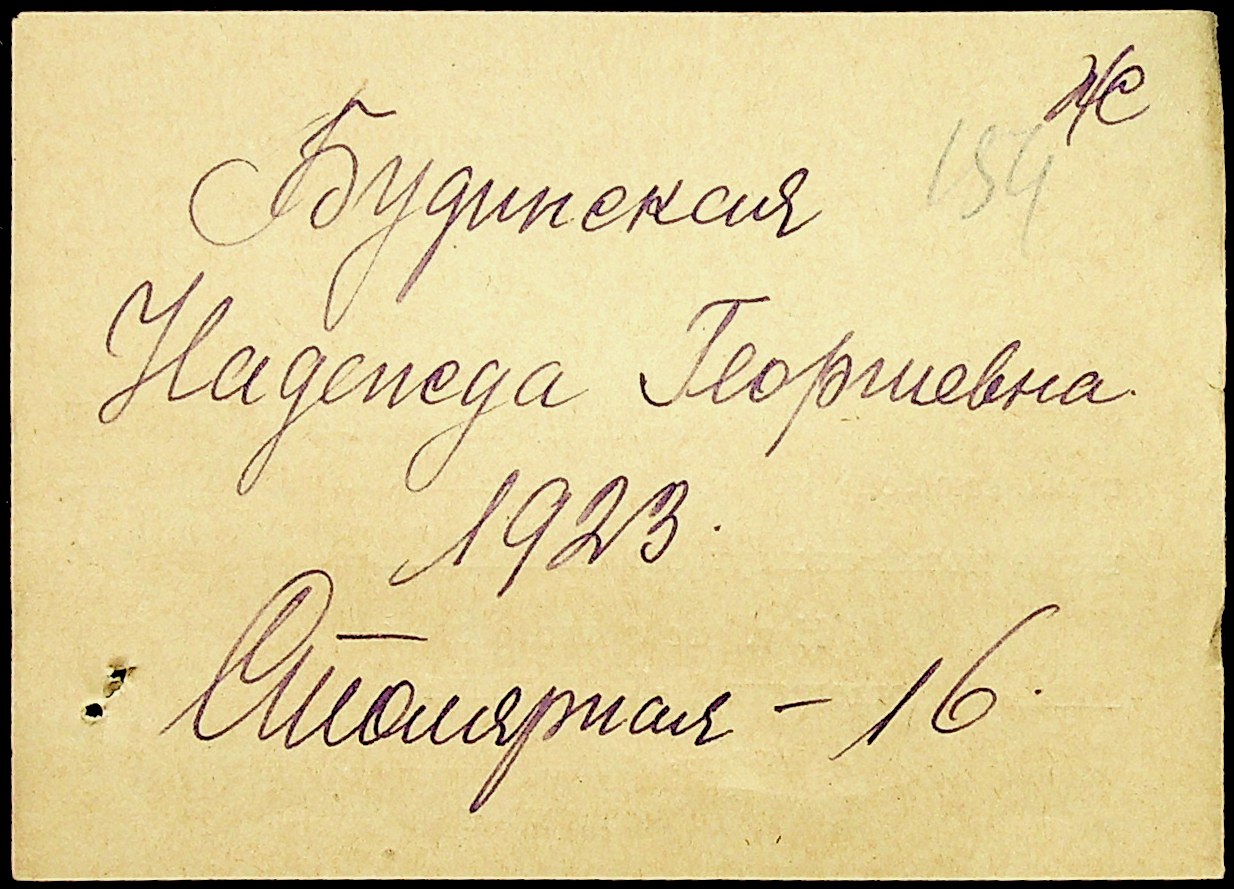 же
154
Будинская
Надежда Георгиевна.
1923.
Столярная - 16.